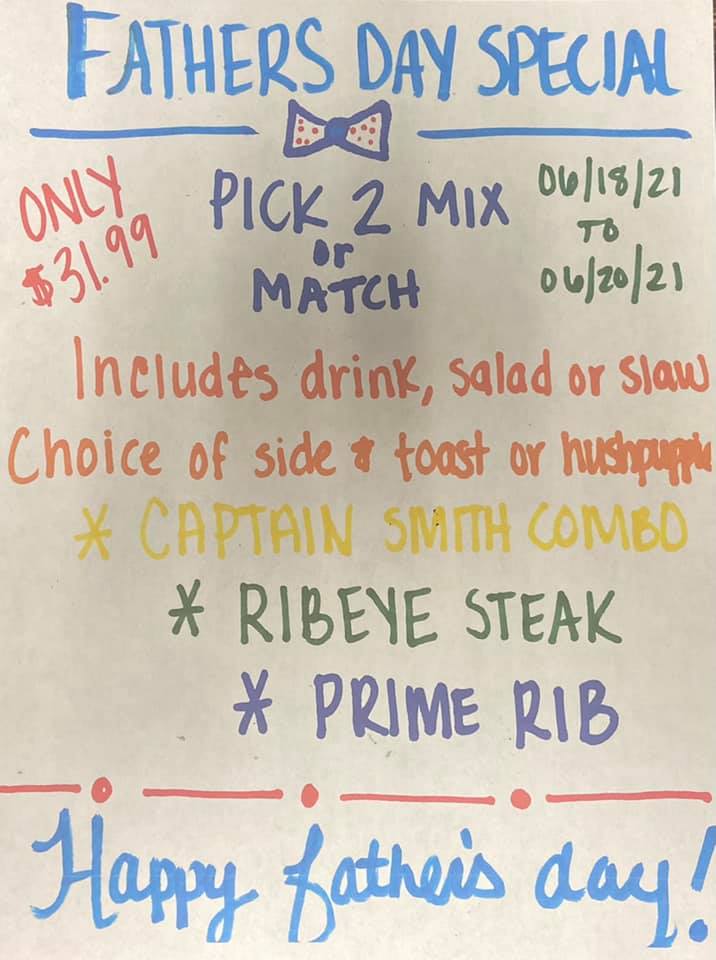 FATHERS DAY SPECIAL
ONLY
$31.99
PICK 2 MIX
or
MATCH
06/18/21
TO
06/20/21
Includes drink, salad or slaw
Choice of side & toast or hushpuppie
* CAPTAIN SMITH COMBO
* RIBEYE STEAK
* PRIME RIB
Happy father's day!